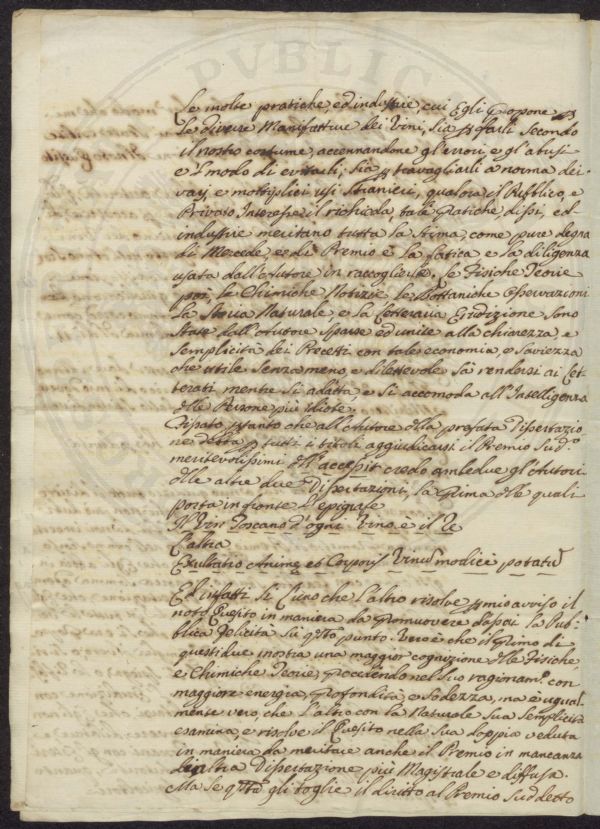 Le molte pratiche, ed industrie, cui Egli propone p
Le diverse Manifatture dei Vini, sia p farli secondo
il nostro costume, accennandone gl'errori, e gl'abusi
e 'l modo di evitarli; sia p travagliarli a norma dei
varj, e moltiplici usi stranieri, qualora il Pubblico, e
Privato Interesse il richieda, tali pratiche dissi, ed
industrie meritano tutta la Stima, come pure degna
di Mercede, e di Premio è la fatica, e la diligenza
usata dall'Autore in raccoglierle. Le Fisiche Teorie
poi, le Chimiche Notizie, le Bottaniche Osservazioni
la Storia Naturale, e la Letteraria Erudizione sono
State dall'Autore sparse ed unite alla chiarezza, e
semplicità dei Precetti con tale economia, e saviezza
che utile senza meno, e dilettevole sa rendersi ai Let-
terati mentre si adatta, e si accomoda all'Intelligenza
delle Persone più idiote.
che all'Autore della prefata Dissertazio
ne debba p tutti i titoli aggiudicarsi il Premio Sud.o
meritevolissimi dell'accessit credo ambedue gl'Autori
delle altre due Dissertazioni, la prima delle quali
porta in fronte l'epigrafe
Il Vin Toscano d'ogni Vino è il Re
L'altra
Exultatio Animę, et Corporis Vinum modicè potatum
Ed infatti si l'uno che l'altro risolve p mio avviso il
noto Quesito in maniera da promuovere la Pub-
blica felicità su q.sto punto. Vero è che il primo di
questi due mostra una maggior cognizione delle Fisiche
e Chimiche Teorie, procedendo nel suo ragionam.o con
maggiore energia, profondità, e sodezza, ma è ugual-
mente vero, che l'altro con la Naturale sua semplicità
esamina, e risolve il Quesito nella sua doppia veduta
in maniera da meritare anche il Premio in mancanza
d'altra Dissertazione più Magistrale e diffusa.
Ma se q.sto gli toglie il diritto al Premio suddetto